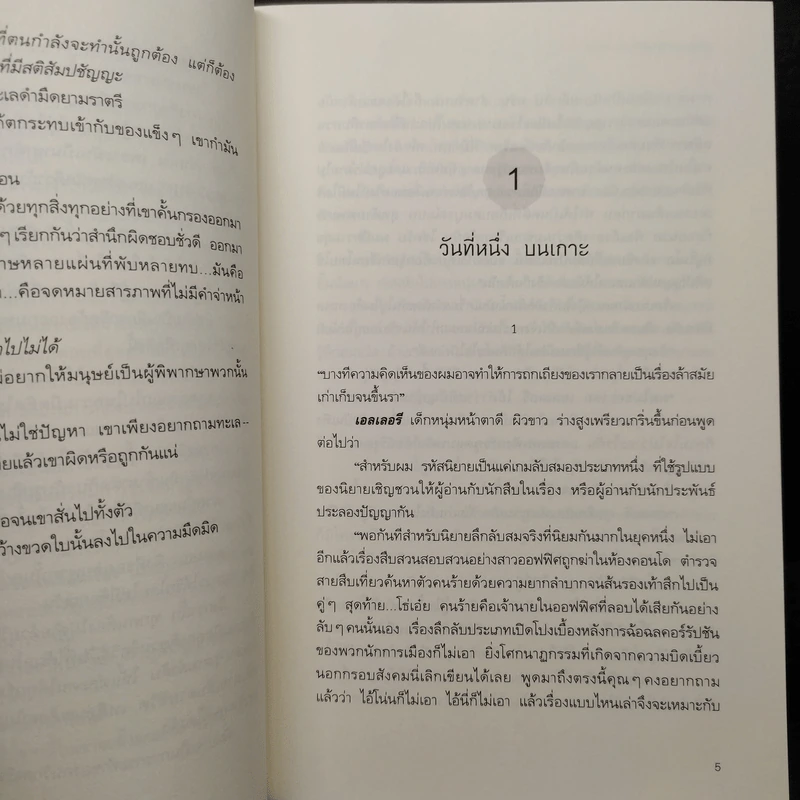 ที่ตนกำลังจะทำนั้นถูกต้อง แต่ก็ต้อง
ที่มีสติสัมปชัญญะ
ะเลดำมืดยามราตรี
ก็ตกระทบเข้ากับของแข็งๆ เขากำมัน
อน
ด้วยทุกสิ่งทุกอย่างที่เขาคั้นกรองออกมา
ๆ เรียกกันว่าสำนึกผิดชอบชั่วดี ออกมา
าษหลายแผ่นที่พับหลายทบ...มันคือ
...คือจดหมายสารภาพที่ไม่มีคำจ่าหน้า
าไปไม่ได้
อยากให้มนุษย์เป็นผู้พิพากษาพวกนั้น
นไม่ใช่ปัญหา เขาเพียงอยากถามทะเล--
ยแล้วเขาผิดหรือถูกกันแน่
อจนเขาสั่นไปทั้งตัว
ว้างขวดใบนั้นลงไปในความมืดมิด
1
วันที่หนึ่ง บนเกาะ
1
“บางทีความคิดเห็นของผมอาจทำให้การถกเถียงของเรากลายเป็นเรื่องล้าสมัย
เก่าเก็บจนขึ้นรา”
เอลเลอรี เด็กหนุ่มหน้าตาดี ผิวขาว ร่างสูงเพรียวเกริ่นขึ้นก่อนพูด
ต่อไปว่า
“สำหรับผม รหัสนิยายเป็นแค่เกมลับสมองประเภทหนึ่ง ที่ใช้รูปแบบ
ของนิยายเชิญชวนให้ผู้อ่านกับนักสืบในเรื่อง หรือผู้อ่านกับนักประพันธ์
ประลองปัญญากัน
“พอกันทีสำหรับนิยายลึกลับสมจริงที่นิยมกันมากในยุคหนึ่ง ไม่เอา
อีกแล้วเรื่องสืบสวนสอบสวนอย่างสาวออฟฟิศถูกฆ่าในห้องคอนโด ตำรวจ
สายสืบเที่ยวค้นหาตัวคนร้ายด้วยความยากลำบากจนส้นรองเท้าสึกไปเป็น
คู่ๆ สุดท้าย...โธ่เอ๋ย คนร้ายคือเจ้านายในออฟฟิศที่ลอบได้เสียกันอย่าง
ลับๆ คนนั้นเอง เรื่องลึกลับประเภทเปิดโปงเบื้องหลังการฉ้อฉลคอร์รัปชัน
ของพวกนักการเมืองก็ไม่เอา ยิ่งโศกนาฏกรรมที่เกิดจากความบิดเบี้ยว
นอกกรอบสังคมนี่เลิกเขียนได้เลย พูดมาถึงตรงนี้คุณๆ คงอยากถาม
แล้วว่า ไอ้โน่นก็ไม่เอา ไอ้นี่ก็ไม่เอา แล้วเรื่องแบบไหนเล่าจึงจะเหมาะกับ
5